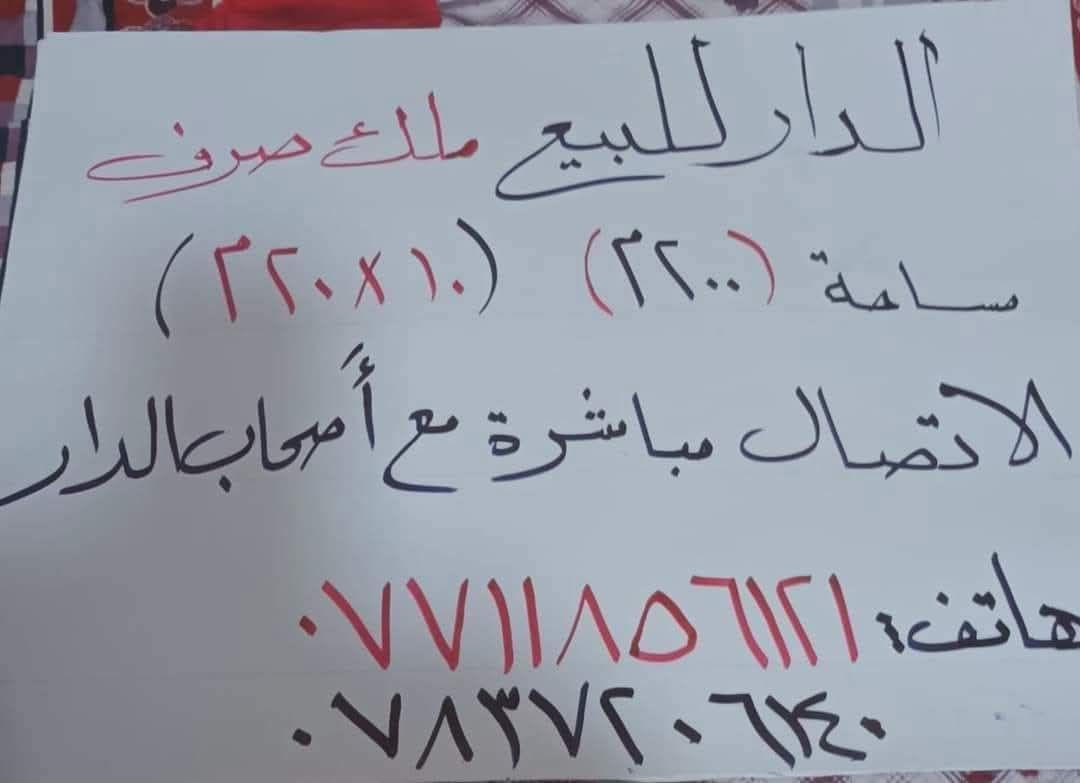 الدار للبيع ملك صرف
مساحة (٢٠٠م٢) (١٠×٢٠م٢)
الاتصال مباشرة مع أصحاب الدار
هاتف: ٠٧٧١١٨٥٦١٢١
٠٧٨٣٧٢٠٦١٤٠